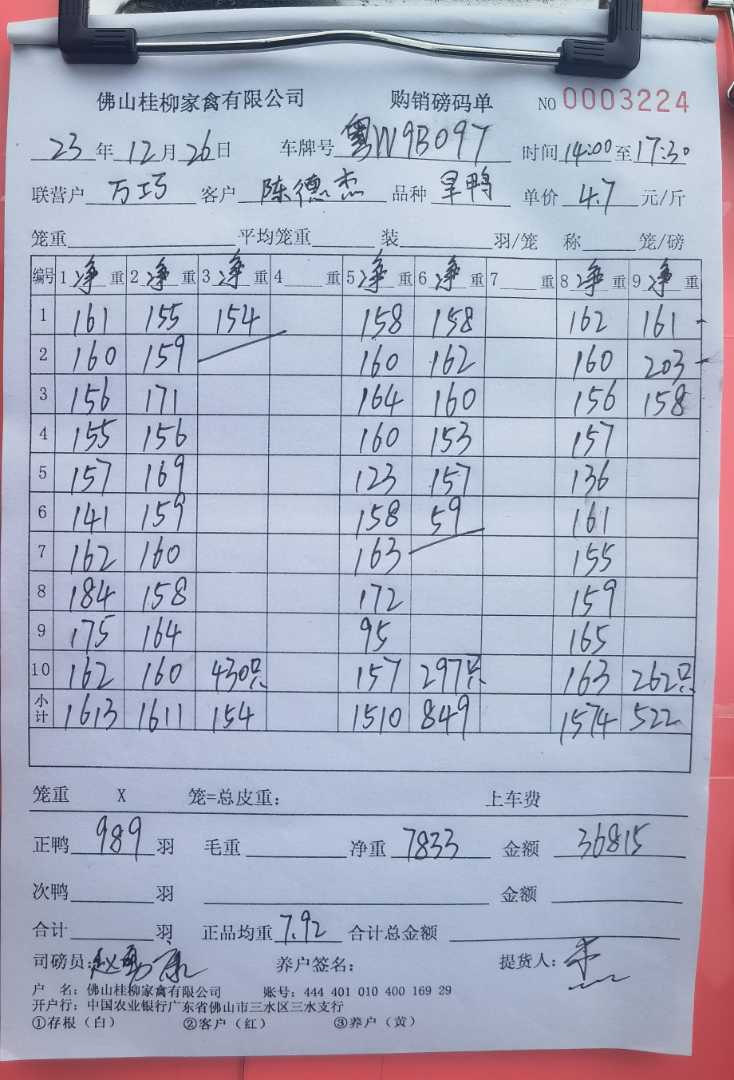 佛山桂柳家禽有限公司 购销磅码单 NO 0003224
23年12月26日 车牌号 粤W9B097 时间 14:00至17:30
联营户 万巧 客户 陈德杰 品种 旱鸭 单价 4.7 元/斤
笼重 平均笼重 装 羽/笼 称 笼/磅
编号 1净重 2净重 3净重 4 重 5净重 6净重 7 重 8净重 9净重
1 161 155 154 158 158 162 161
2 160 159 160 162 160 203
3 156 171 164 160 156 158
4 155 156 160 153 157
5 157 169 123 157 136
6 141 159 158 59 161
7 162 160 163 155
8 184 158 172 159
9 175 164 95 165
10 162 160 430只 157 297只 163 262只
小计 1613 1611 154 1510 849 1574 522
笼重 X 笼=总皮重： 上车费
正鸭 989 羽 毛重 净重 7833 金额 36815
次鸭 羽 金额
合计 羽 正品均重 7.92 合计总金额
司磅员： 养户签名： 提货人：
户 名：佛山桂柳家禽有限公司 账号：444 401 010 400 169 29
开户行：中国农业银行广东省佛山市三水区三水支行
①存根（白） ②客户（红） ③养户（黄）